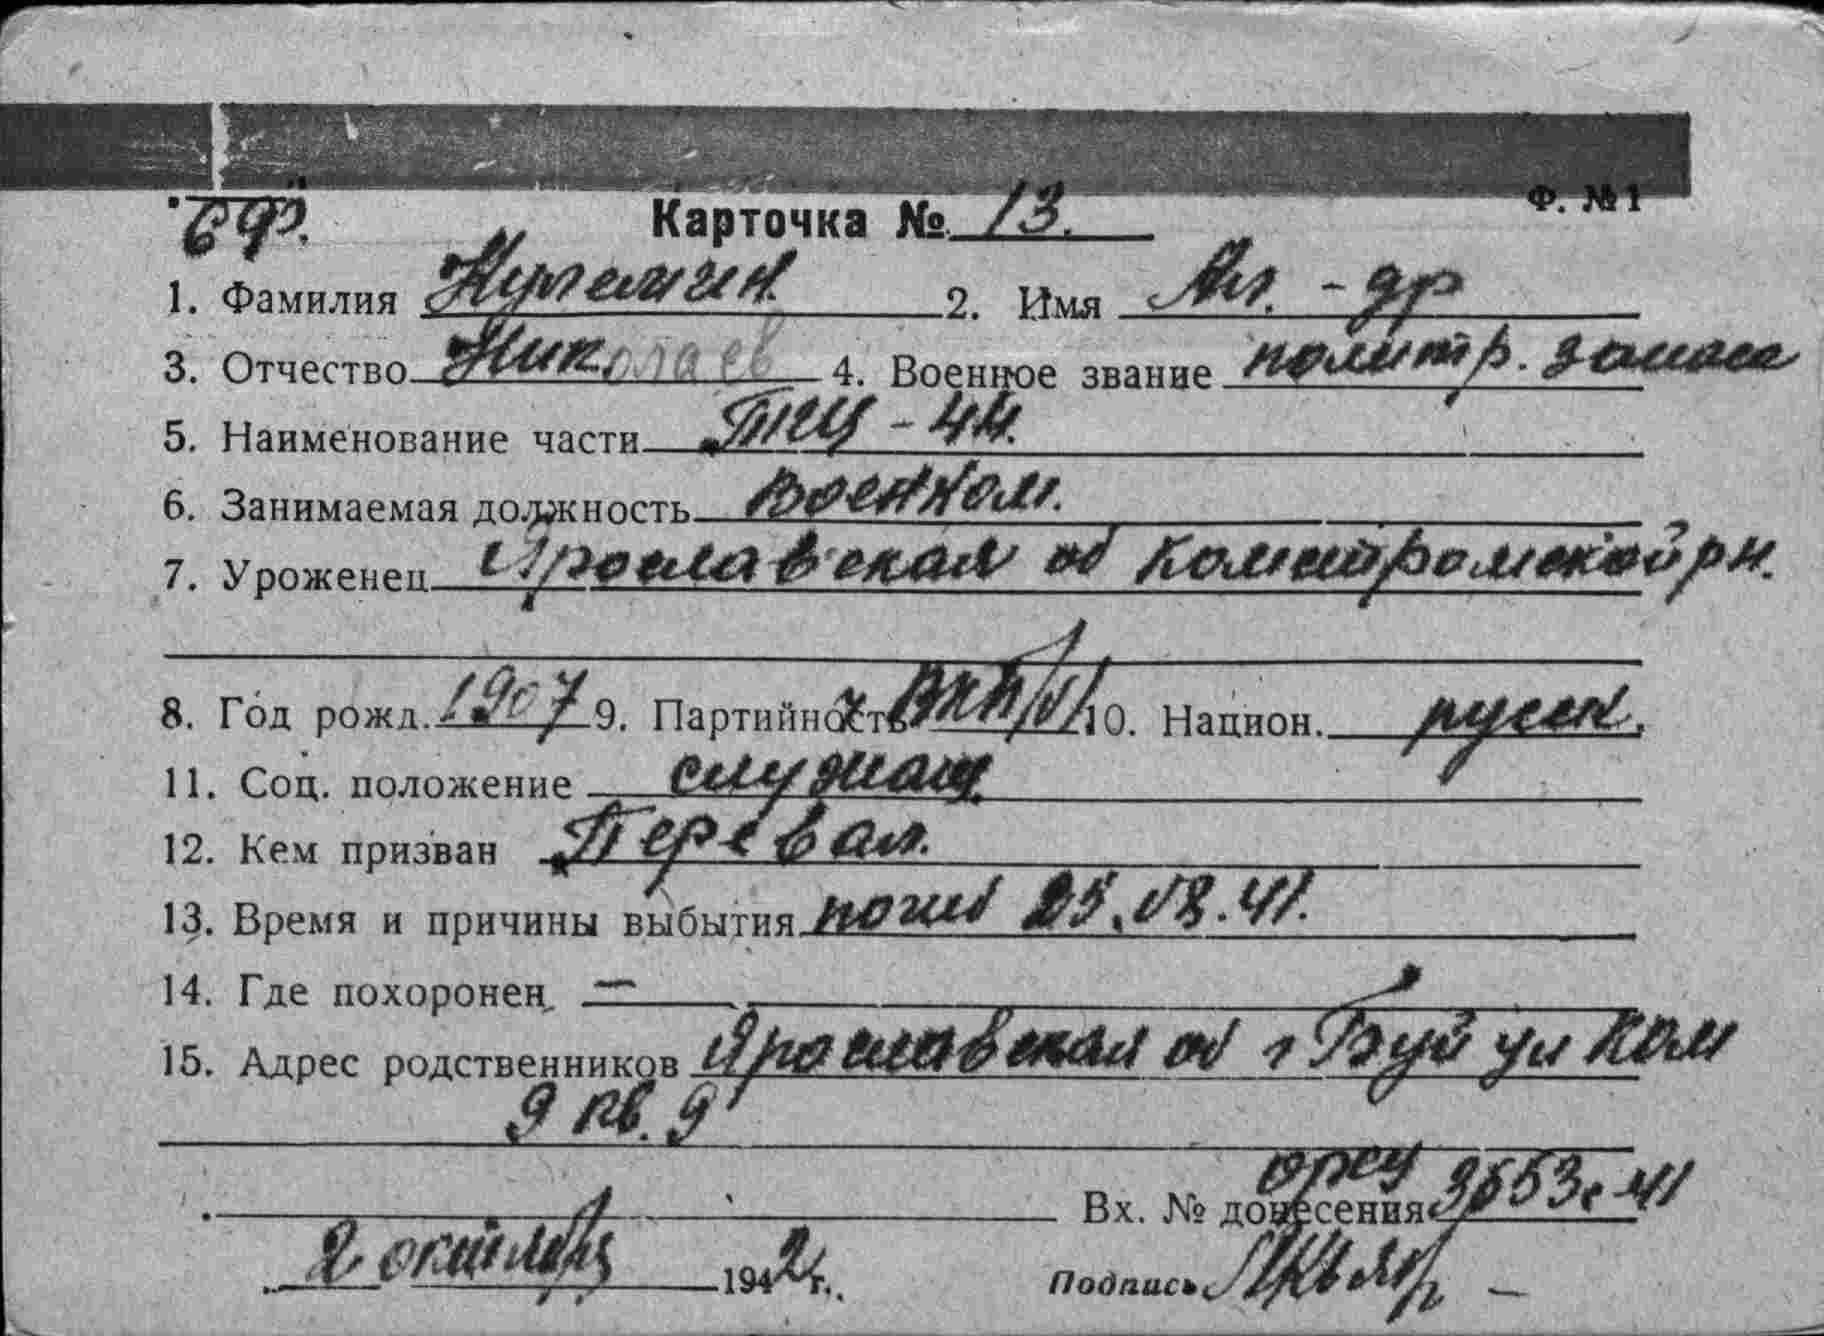 Ф. №1
Карточка № 13.
1. Фамилия 2. Имя Ал.-др
3. Отчество Николаев 4. Военное звание политр. запаса
5. Наименование части ТКЦ-44.
6. Занимаемая должность Военком.
7. Уроженец Ярославская об Костромской рн.
8. Год рожд. 1907 9. Партийность ВКП/б/ 10. Национ. русск.
11. Соц. положение служащ.
12. Кем призван
13. Время и причины выбытия погиб 25.08.41.
14. Где похоронен —
15. Адрес родственников Ярославская об г Буй ул Ком
9 кв. 9
Вх. № донесения 3653с-41
2 октября 1942 г.
Подпись